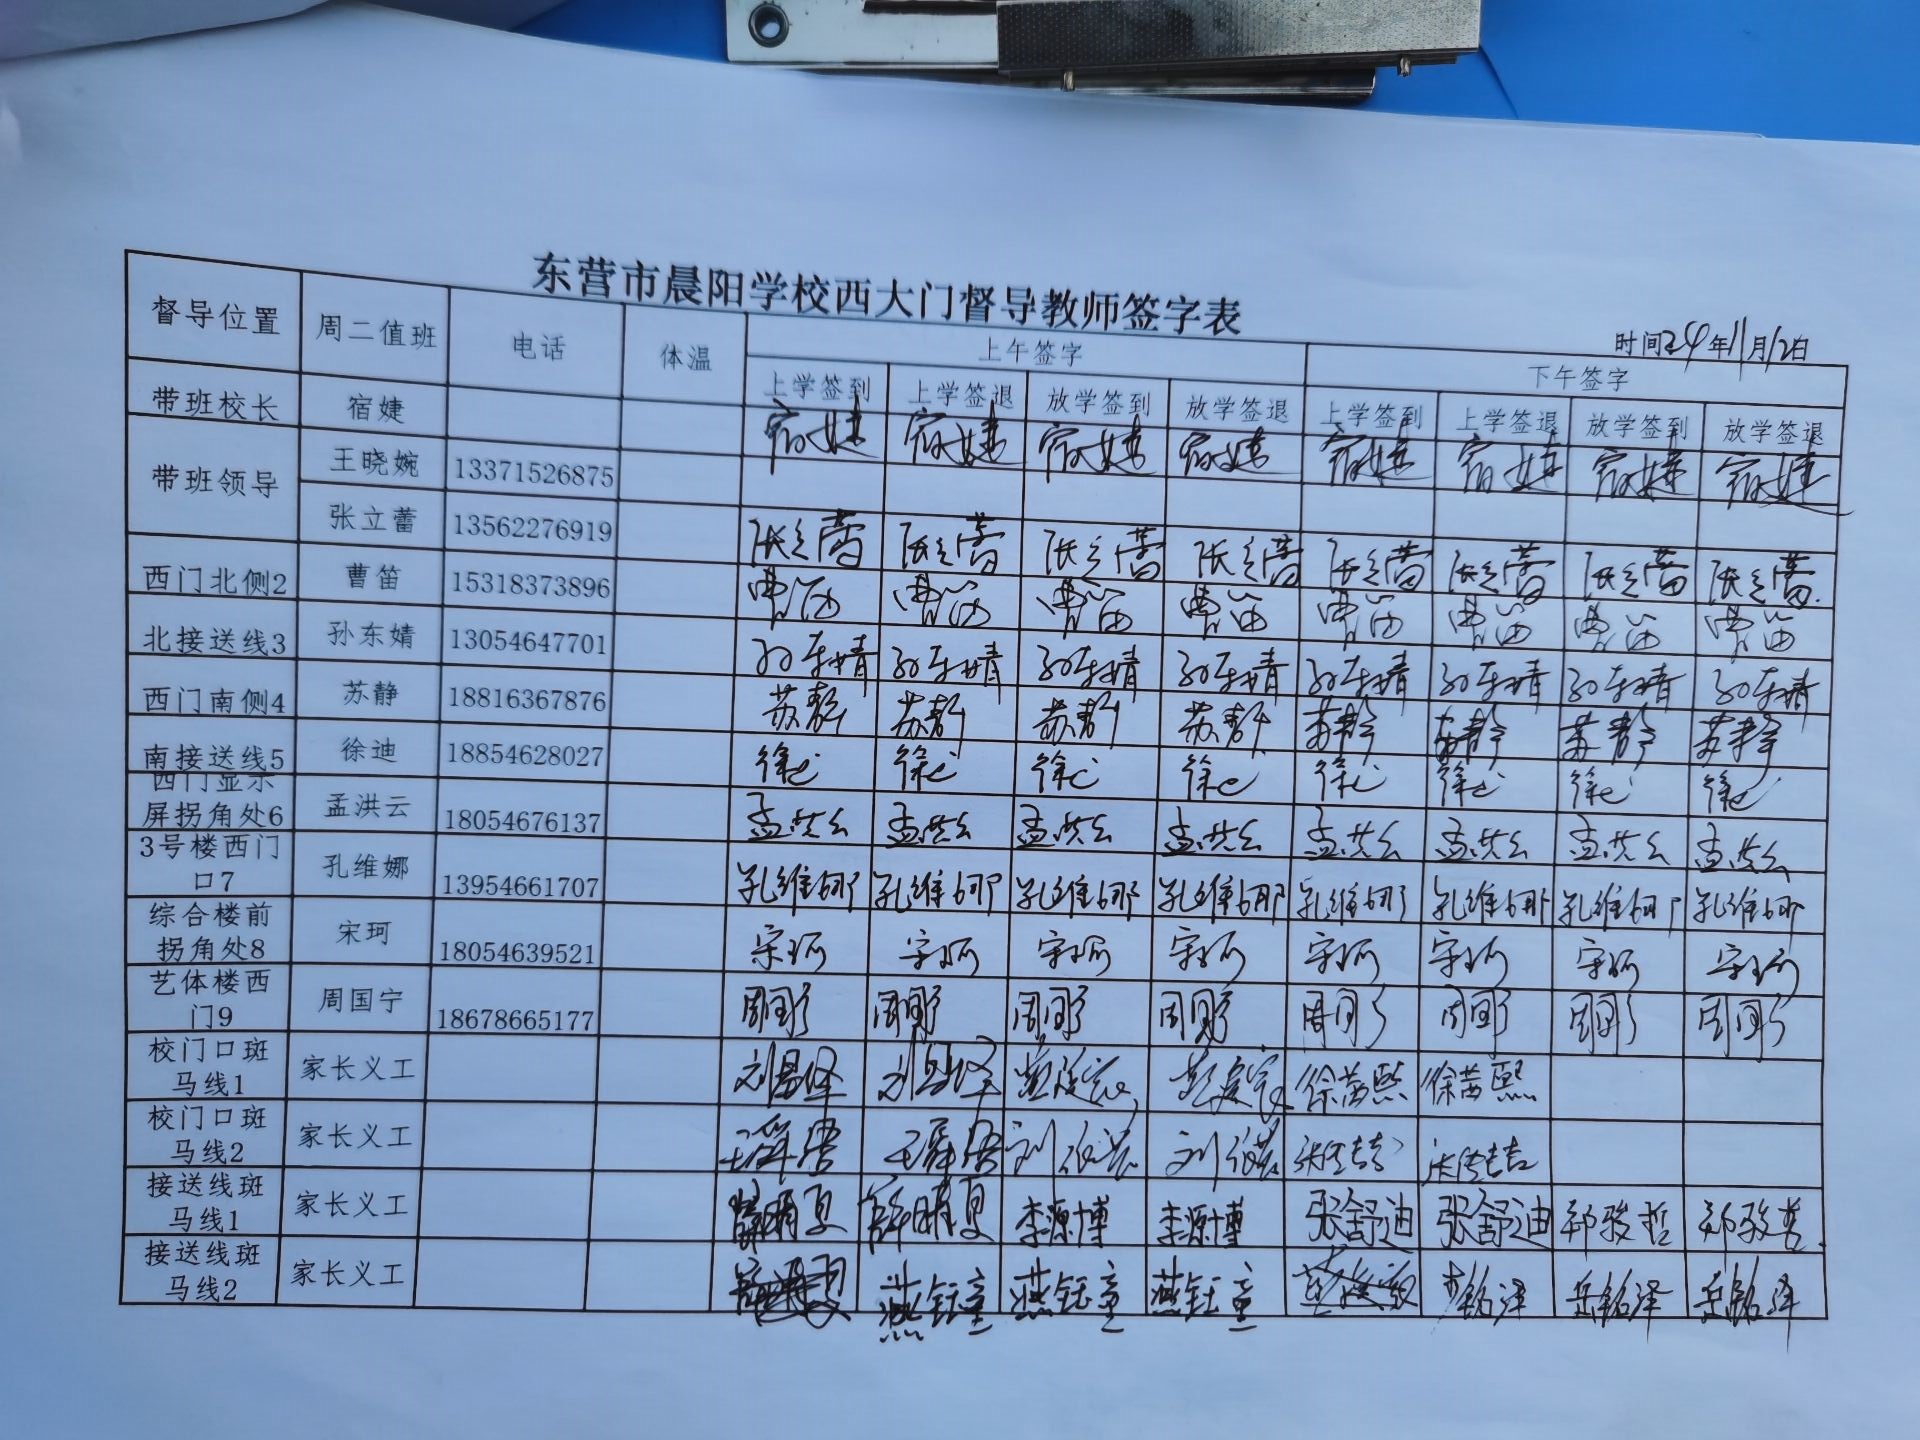 东营市晨阳学校西大门督导教师签字表
时间24年11月12日
督导位置 周二值班 电话 体温 上午签字 下午签字
上学签到 上学签退 放学签到 放学签退 上学签到 上学签退 放学签到 放学签退
带班校长 宿婕 宿婕 宿婕 宿婕 宿婕 宿婕 宿婕 宿婕 宿婕
带班领导 王晓婉 13371526875
张立蕾 13562276919 张立蕾 张立蕾 张立蕾 张立蕾 张立蕾 张立蕾 张立蕾 张立蕾
西门北侧2 曹笛 15318373896 曹笛 曹笛 曹笛 曹笛 曹笛 曹笛 曹笛 曹笛
北接送线3 孙东婧 13054647701 孙东婧 孙东婧 孙东婧 孙东婧 孙东婧 孙东婧 孙东婧 孙东婧
西门南侧4 苏静 18816367876 苏静 苏静 苏静 苏静 苏静 苏静 苏静 苏静
南接送线5 徐迪 18854628027 徐迪 徐迪 徐迪 徐迪 徐迪 徐迪 徐迪 徐迪
西门显示
屏拐角处6 孟洪云 18054676137 孟洪云 孟洪云 孟洪云 孟洪云 孟洪云 孟洪云 孟洪云 孟洪云
3号楼西门
口7 孔维娜 13954661707 孔维娜 孔维娜 孔维娜 孔维娜 孔维娜 孔维娜 孔维娜 孔维娜
综合楼前
拐角处8 宋珂 18054639521 宋珂 宋珂 宋珂 宋珂 宋珂 宋珂 宋珂 宋珂
艺体楼西
门9 周国宁 18678665177 周国宁 周国宁 周国宁 周国宁 周国宁 周国宁 周国宁 周国宁
校门口斑
马线1 家长义工 徐茜熙 徐茜熙
校门口斑
马线2 家长义工
接送线斑
马线1 家长义工 薛晴夏 李源博 李源博 张舒迪 张舒迪 郑骏哲 郑骏哲
接送线斑
马线2 家长义工 燕钰童 燕钰童 燕钰童 岳铭泽 岳铭泽